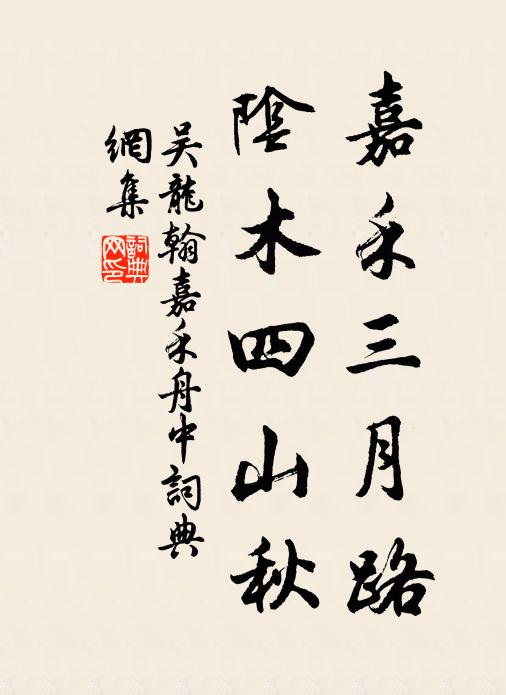 嘉禾三月路
陰木四山秋
吴龍翰嘉禾舟中詞典
網集
詞典
网印